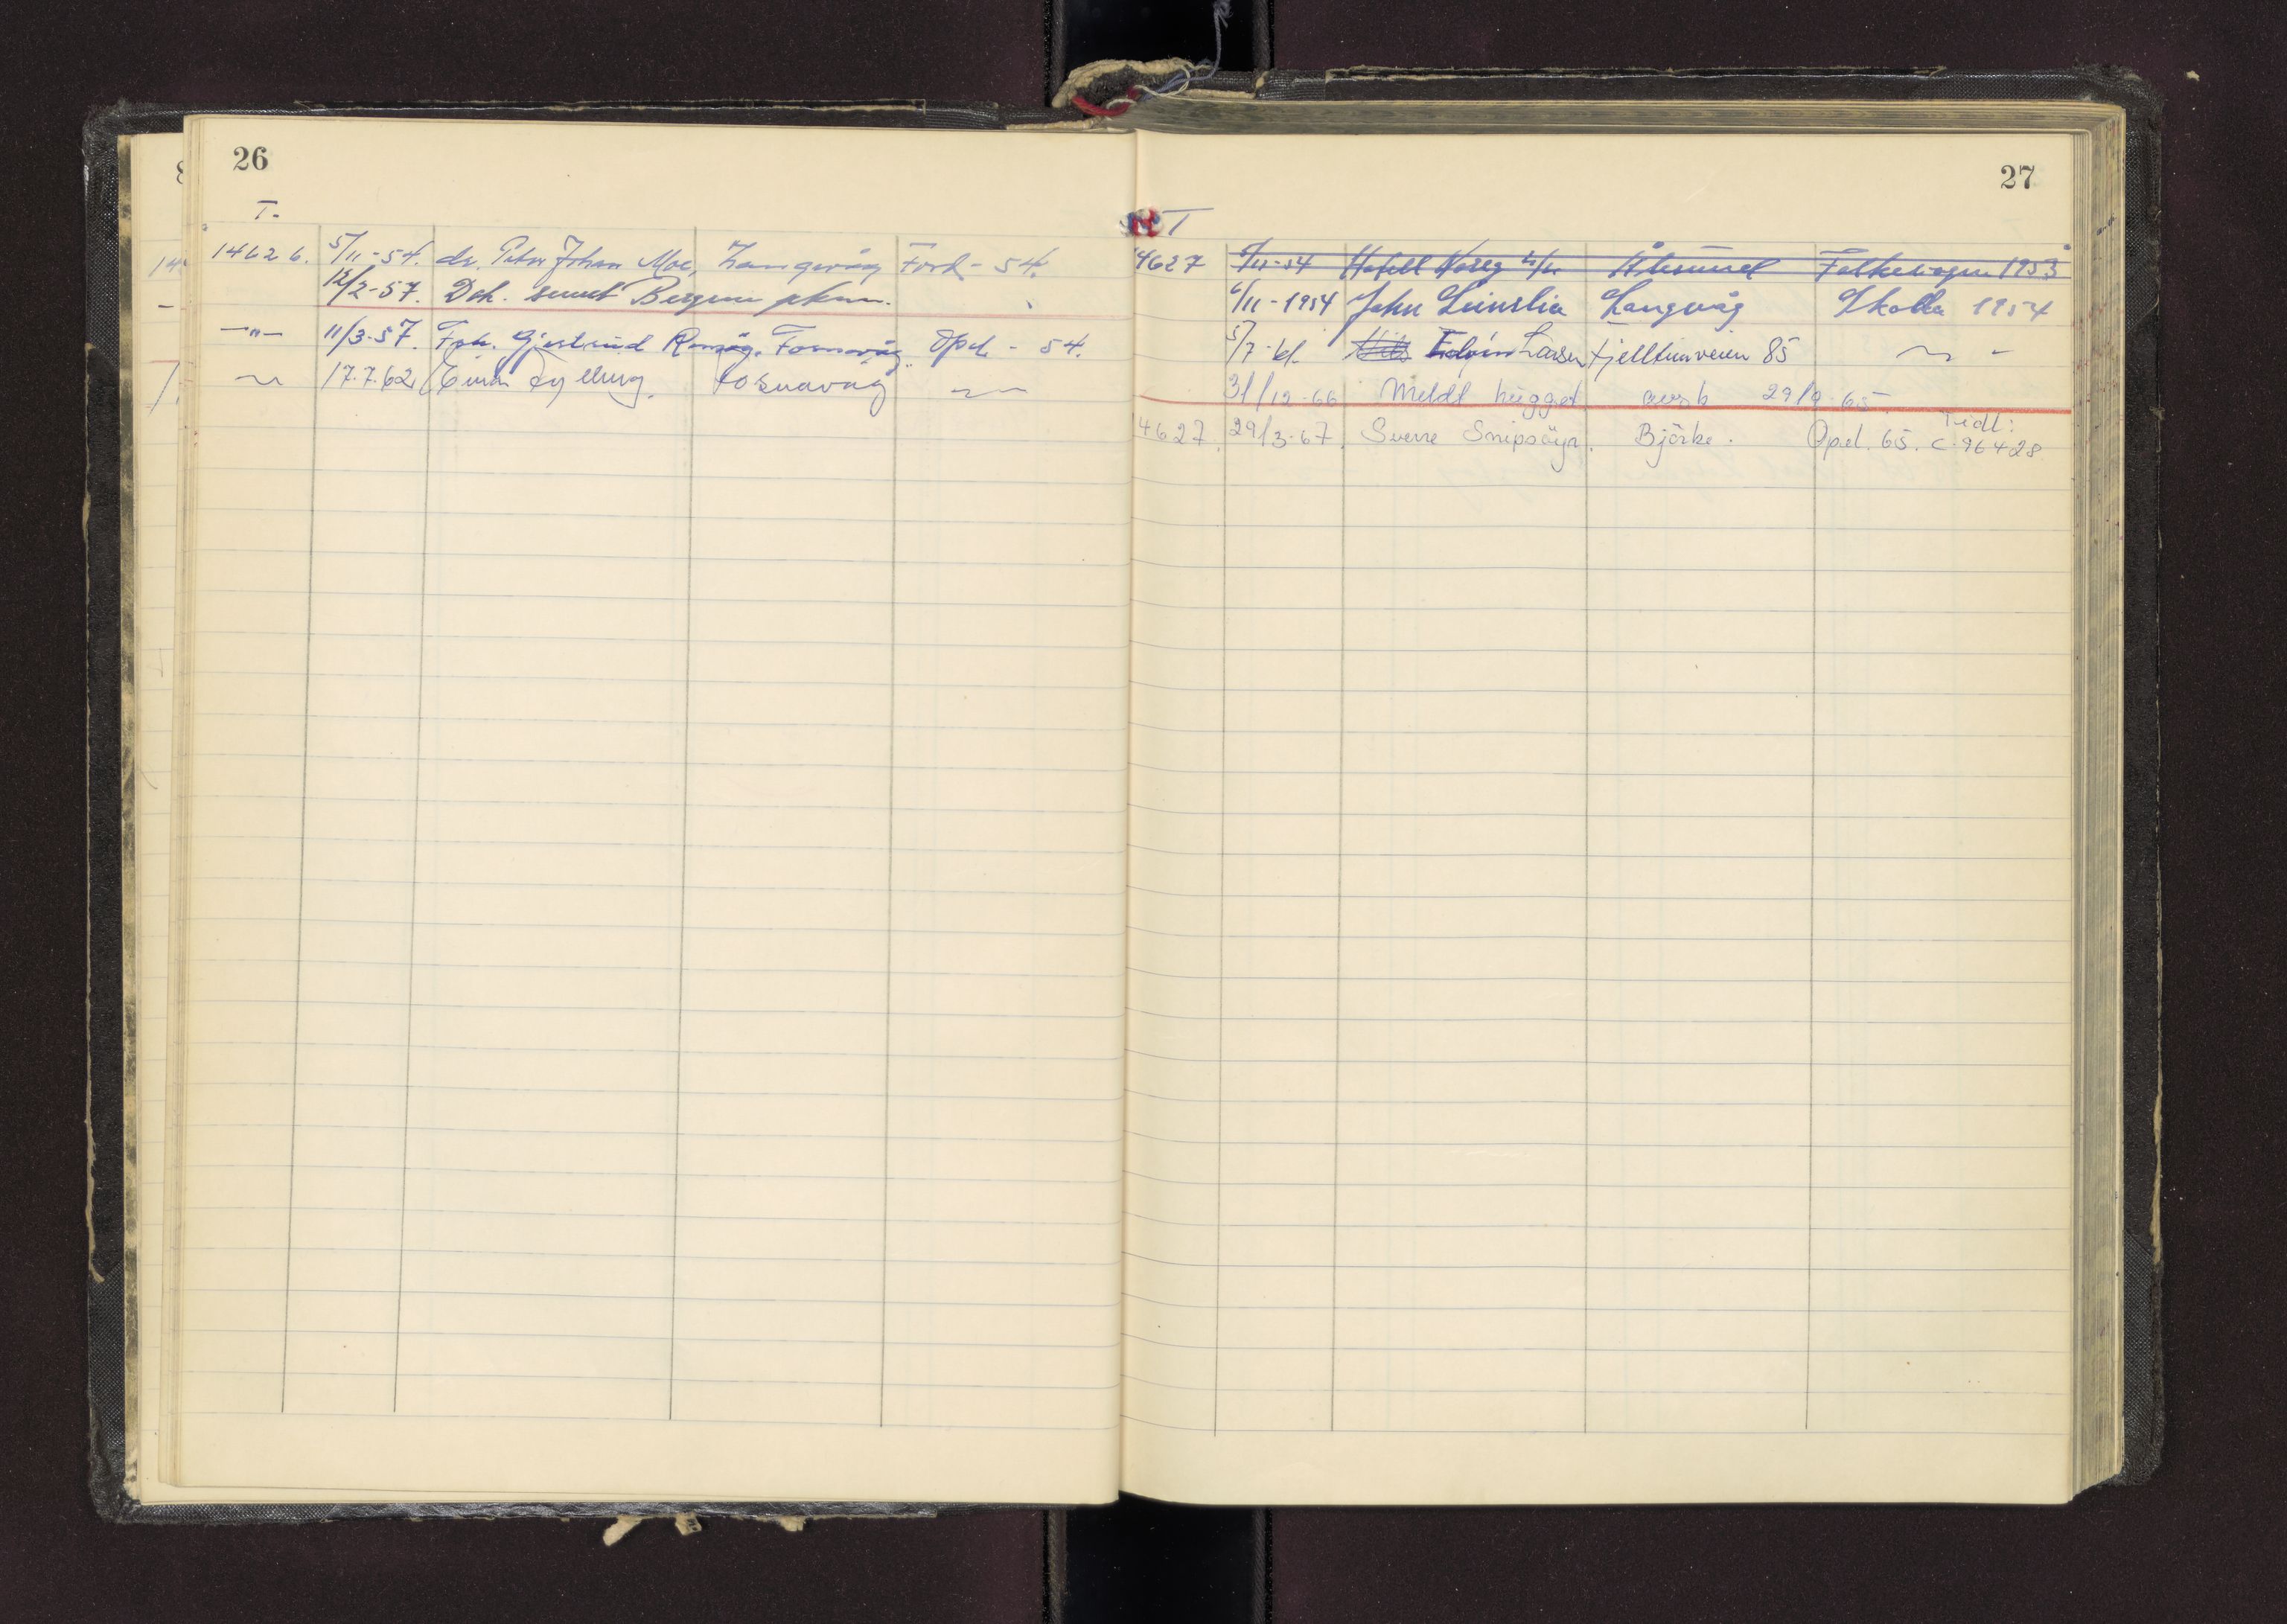 26
T.
14626. 5/11-54. dr. Peter Johan Moe, Langevåg Ford - 54.
12/2-57. Deh. sendt Bergen pkm.
—"— 11/3-57. Frk. Gjertrud Fosnavåg. Opel - 54.
17.7.62 Einar Fosnavåg
27
T
4627 /11-54 Hotell Noreg A/S Ålesund Folkevogn 1953
6/11-1954 John Leinslia Langvåg Skoda 1954
5/7-61. Edvin Larsen Fjelltunveien 85
31/12-66 Meldt hugget avsb 29/9-65
4627. 29/3-67. Sverre Snipsöyr. Björke. Opel. 65. Tidl: C-96428